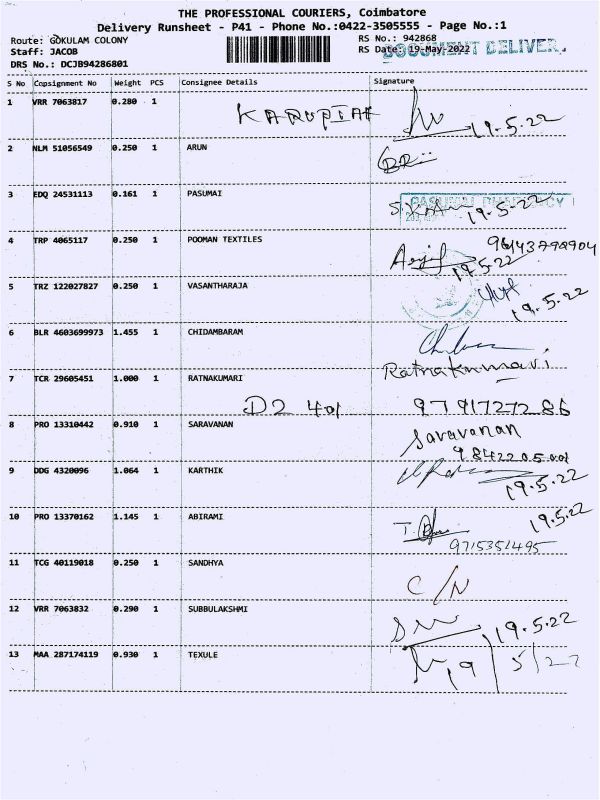 THE PROFESSIONAL COURIERS, Coimbatore
Delivery Runsheet - P41 - Phone No.:0422-3505555 - Page No.:1
Route: GOKULAM COLONY RS No.: 942868
Staff: JACOB RS Date: 19-May-2022 DOCUMENT DELIVER.
DRS No.: DCJB94286801
S No Consignment No Weight PCS Consignee Details Signature
1 VRR 7063817 0.280 1 KARUPIAH 19.5.22
2 NLM 51056549 0.250 1 ARUN
3 EDQ 24531113 0.161 1 PASUMAI PASUMAI PHARMACY 19.5.22
4 TRP 4065117 0.250 1 POOMAN TEXTILES 19.5.22
5 TRZ 122027827 0.250 1 VASANTHARAJA 19.5.22
6 BLR 4603699973 1.455 1 CHIDAMBARAM
7 TCR 29605451 1.000 1 RATNAKUMARI Ratnakumari
D2 401 9791727286
8 PRO 13310442 0.910 1 SARAVANAN Saravanan
9 DDG 4320096 1.064 1 KARTHIK 19.5.22
10 PRO 13370162 1.145 1 ABIRAMI 19.5.22
9715351495
11 TCG 40119018 0.250 1 SANDHYA C/N
12 VRR 7063832 0.290 1 SUBBULAKSHMI 19.5.22
13 MAA 287174119 0.930 1 TEXULE 19/5/22